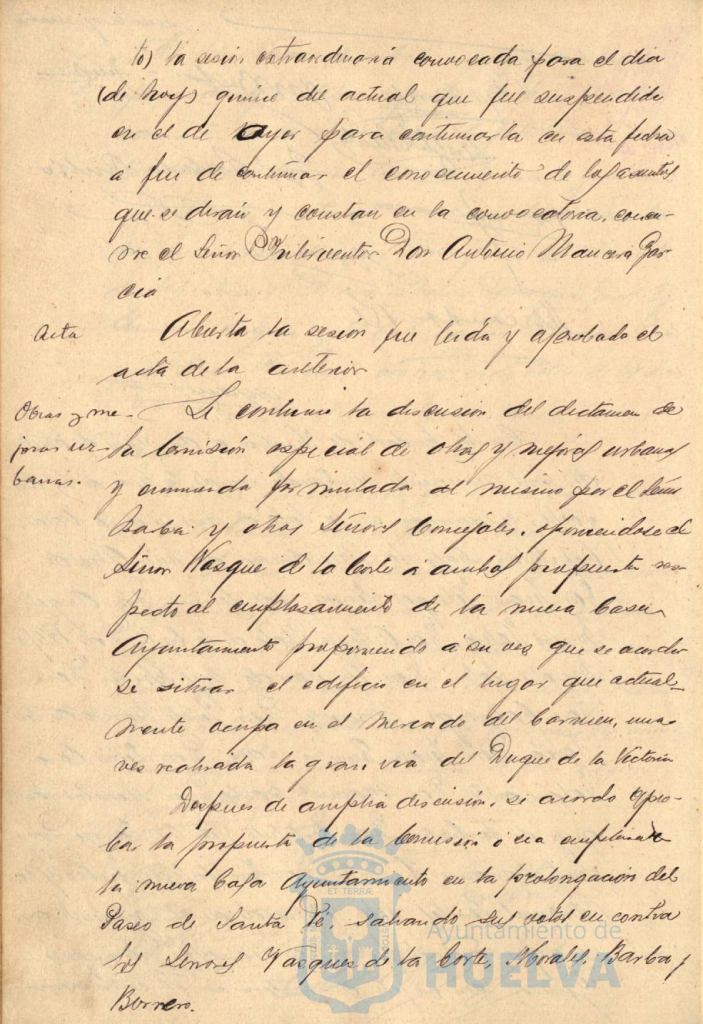 to) la sesión extraordinaria convocada para el dia
(de hoy) quince del actual que fue suspendida
en el de ayer para continuarla en esta fecha
a fin de continuar el conocimiento de los asuntos
que se dirán y constan en la convocatoria, concu-
rre el Señor Interventor Don Antonio Mancera Gar-
cia
Acta
Abierta la sesión fue leida y aprobada el
acta de la anterior
Obras y me-
joras ur-
banas.
Se continuó la discusión del dictamen de
la Comisión especial de obras y mejoras urbanas
y enmienda formulada al mismo por el Señor
Barba y otros Señores Concejales, oponiendose el
Señor Vasque de la Corte á ambas propuestas res-
pecto al emplasamiento de la nueva Casa
Ayuntamiento proponiendo á su ves que se acorda-
se situar el edificio en el lugar que actual-
mente ocupa en el Mercado del Carmen, una
ves realisada la gran via del Duque de la Victoria
Despues de amplia discusión, se acordó apro-
bar la propuesta de la Comisión ó sea emplasar
la nueva Casa Ayuntamiento en la prolongación del
Paseo de Santa Fé, salvando sus votos en contra
los Señores Vasques de la Corte, Morales, Barba y
Borrero.
ET TERRA
Ayuntamiento de
HUELVA